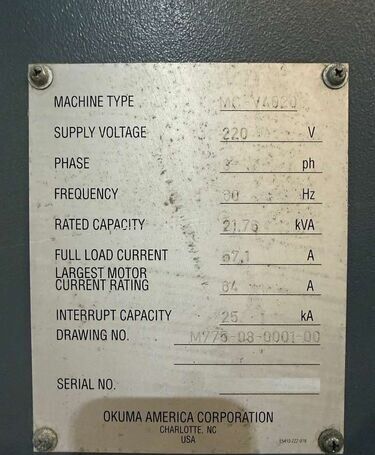 MACHINE TYPE MC-V4020
SUPPLY VOLTAGE 220 V
PHASE 3 ph
FREQUENCY 60 Hz
RATED CAPACITY 21.76 kVA
FULL LOAD CURRENT 57.1 A
LARGEST MOTOR
CURRENT RATING 64 A
INTERRUPT CAPACITY 25 kA
DRAWING NO. M775-03-0001-00
SERIAL NO.
OKUMA AMERICA CORPORATION
CHARLOTTE, NC
USA